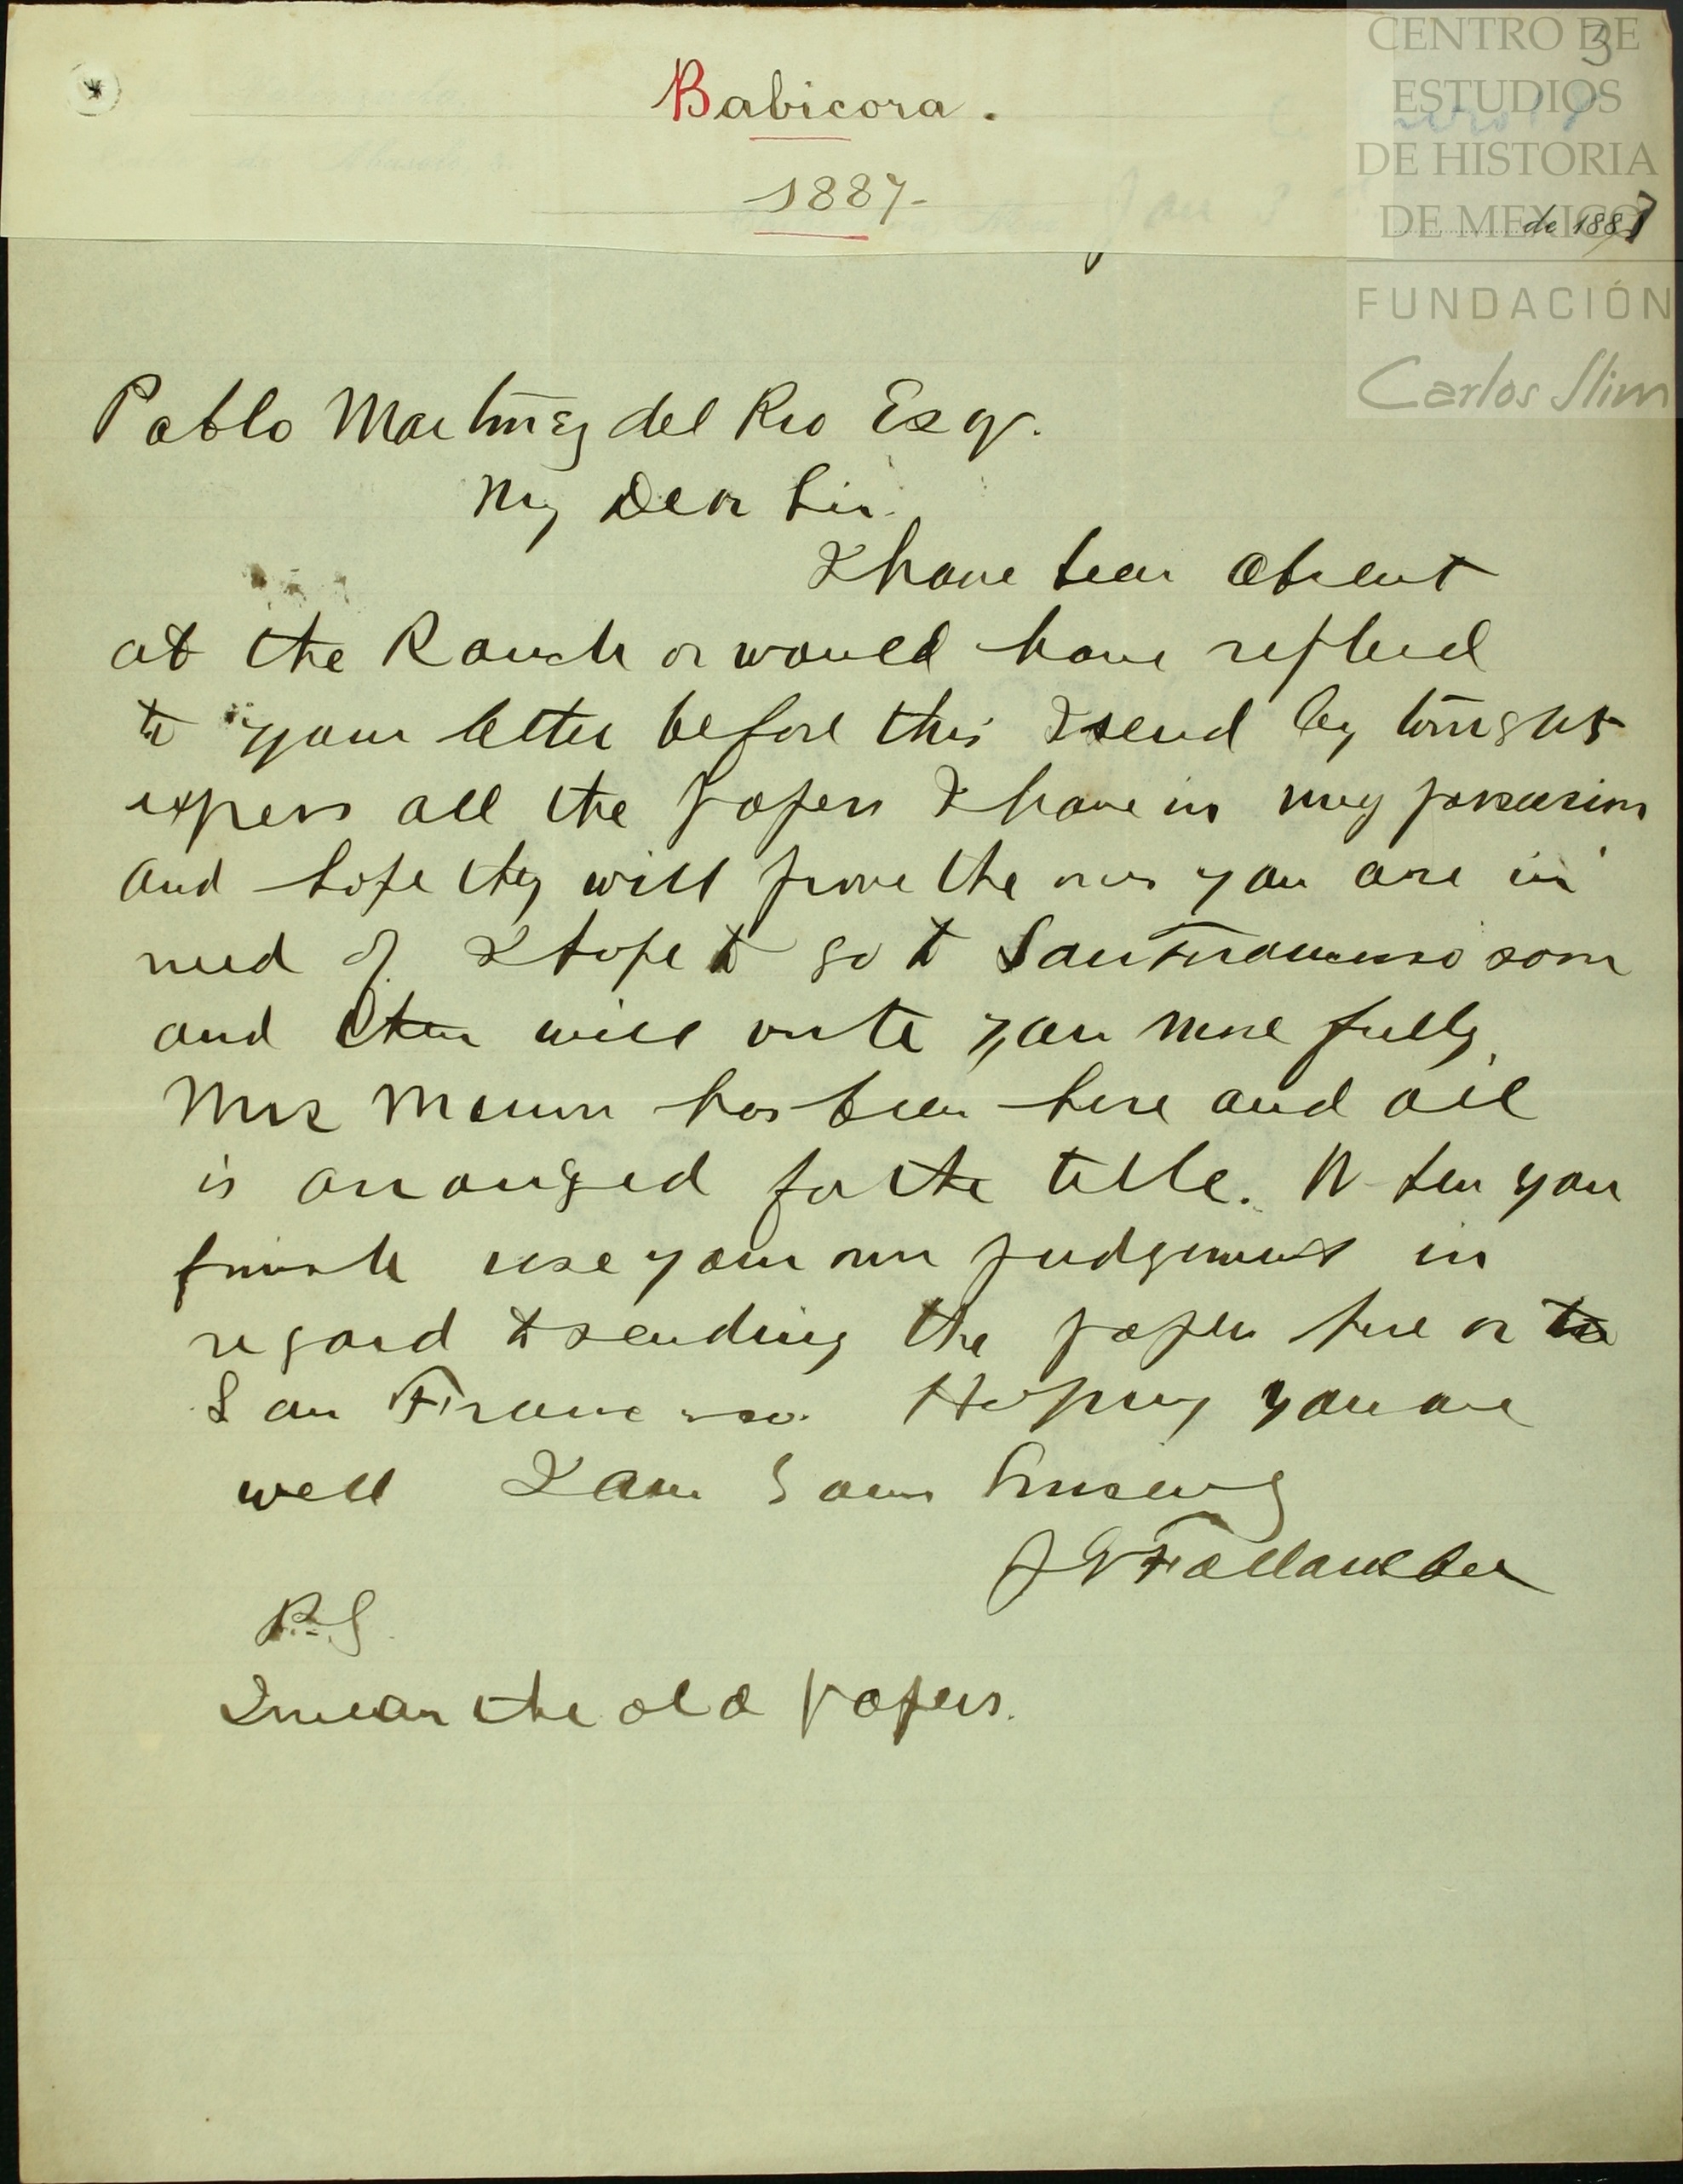 CENTRO DE
ESTUDIOS
DE HISTORIA
DE MEXICO
FUNDACIÓN
Carlos Slim
3
Babicora.
1887-
de 1887
Pablo Martinez del Rio Esqr.
My Dear Sir.
I have been absent
at the Ranch or would have replied
to your letter before this I send by tonights
express all the papers I have in my possession
and hope they will prove the ones you are in
need of I hope to go to San Francisco soon
and then will write you more fully.
Mrs has been here and all
is arranged for the title. When you
finish use your own judgement in
regard to sending the papers here or to
San Francisco. Hoping you are
well I am Yours Sincerely
J G Follansbee
P.S.
I mean the old papers.